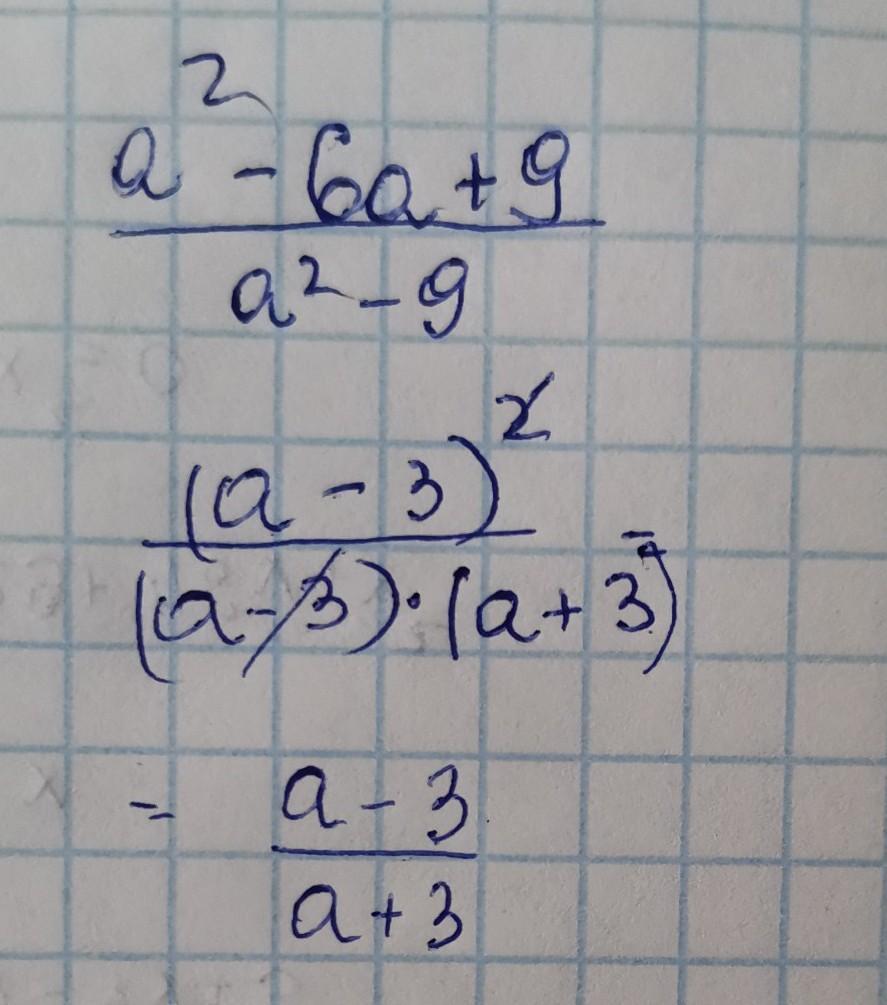 a² - 6a + 9
a² - 9
(a - 3)²
(a - 3) · (a + 3)
= a - 3
a + 3